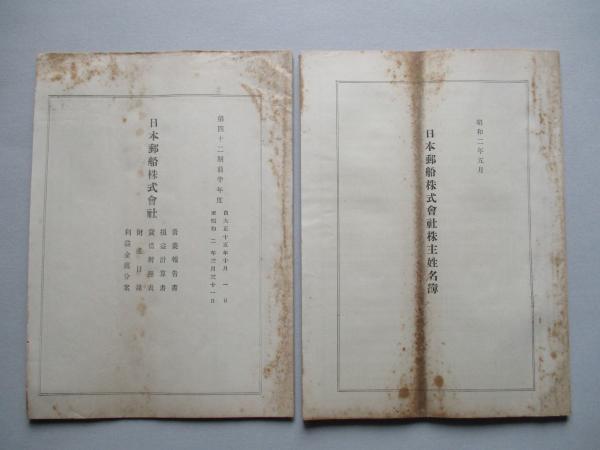 昭和二年五月
日本郵船株式會社株主姓名簿
第四十二期前半年度
自大正十五年十月一日
至昭和二年三月三十一日
日本郵船株式會社
營業報告書
損益計算書
貸借對照表
財產目錄
利益金處分案